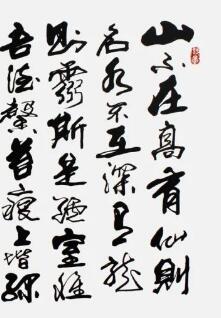 山不在高有仙則
名水不在深有龍
則靈斯是陋室惟
吾德馨苔痕上堦綠